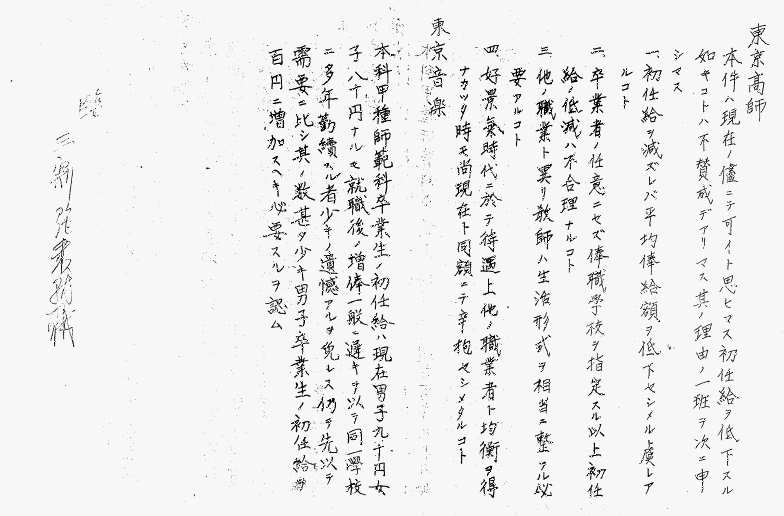 東京高師
本件ハ現在ノ儘ニテ可イト思ヒマス初任給ヲ低下スル
如キコトハ不賛成デアリマス其ノ理由ノ一班ヲ次ニ申
シマス
一、初任給ヲ減ズレバ平均俸給額ヲ低下セシメル虞レア
ルコト
二、卒業者ノ任意ニセズ俸職学校ヲ指定スル以上初任
給ノ低減ハ不合理ナルコト
三、他ノ職業ト異リ教師ハ生活形式ヲ相当ニ整フル必
要アルコト
四、好景氣時代ニ於テ待遇上他ノ職業者ト均衡ヲ得
ナカッタ時モ尚現在ト同額ニテ辛抱セシメタルコト
東京音楽
本科甲種師範科卒業生ノ初任給ハ現在男子九十円女
子八十円ナルモ就職後ノ増俸一般ニ遅キヲ以テ同一学校
ニ多年勤續スル者少キノ遺憾アルヲ免レス仍テ先以テ
需要ニ比シ其ノ数甚タ少キ男子卒業生ノ初任給ヲ
百円ニ増加スヘキ必要スルヲ認ム